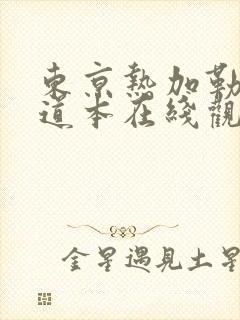 東京熱加勒
道本在綫觀
金星遇見土星